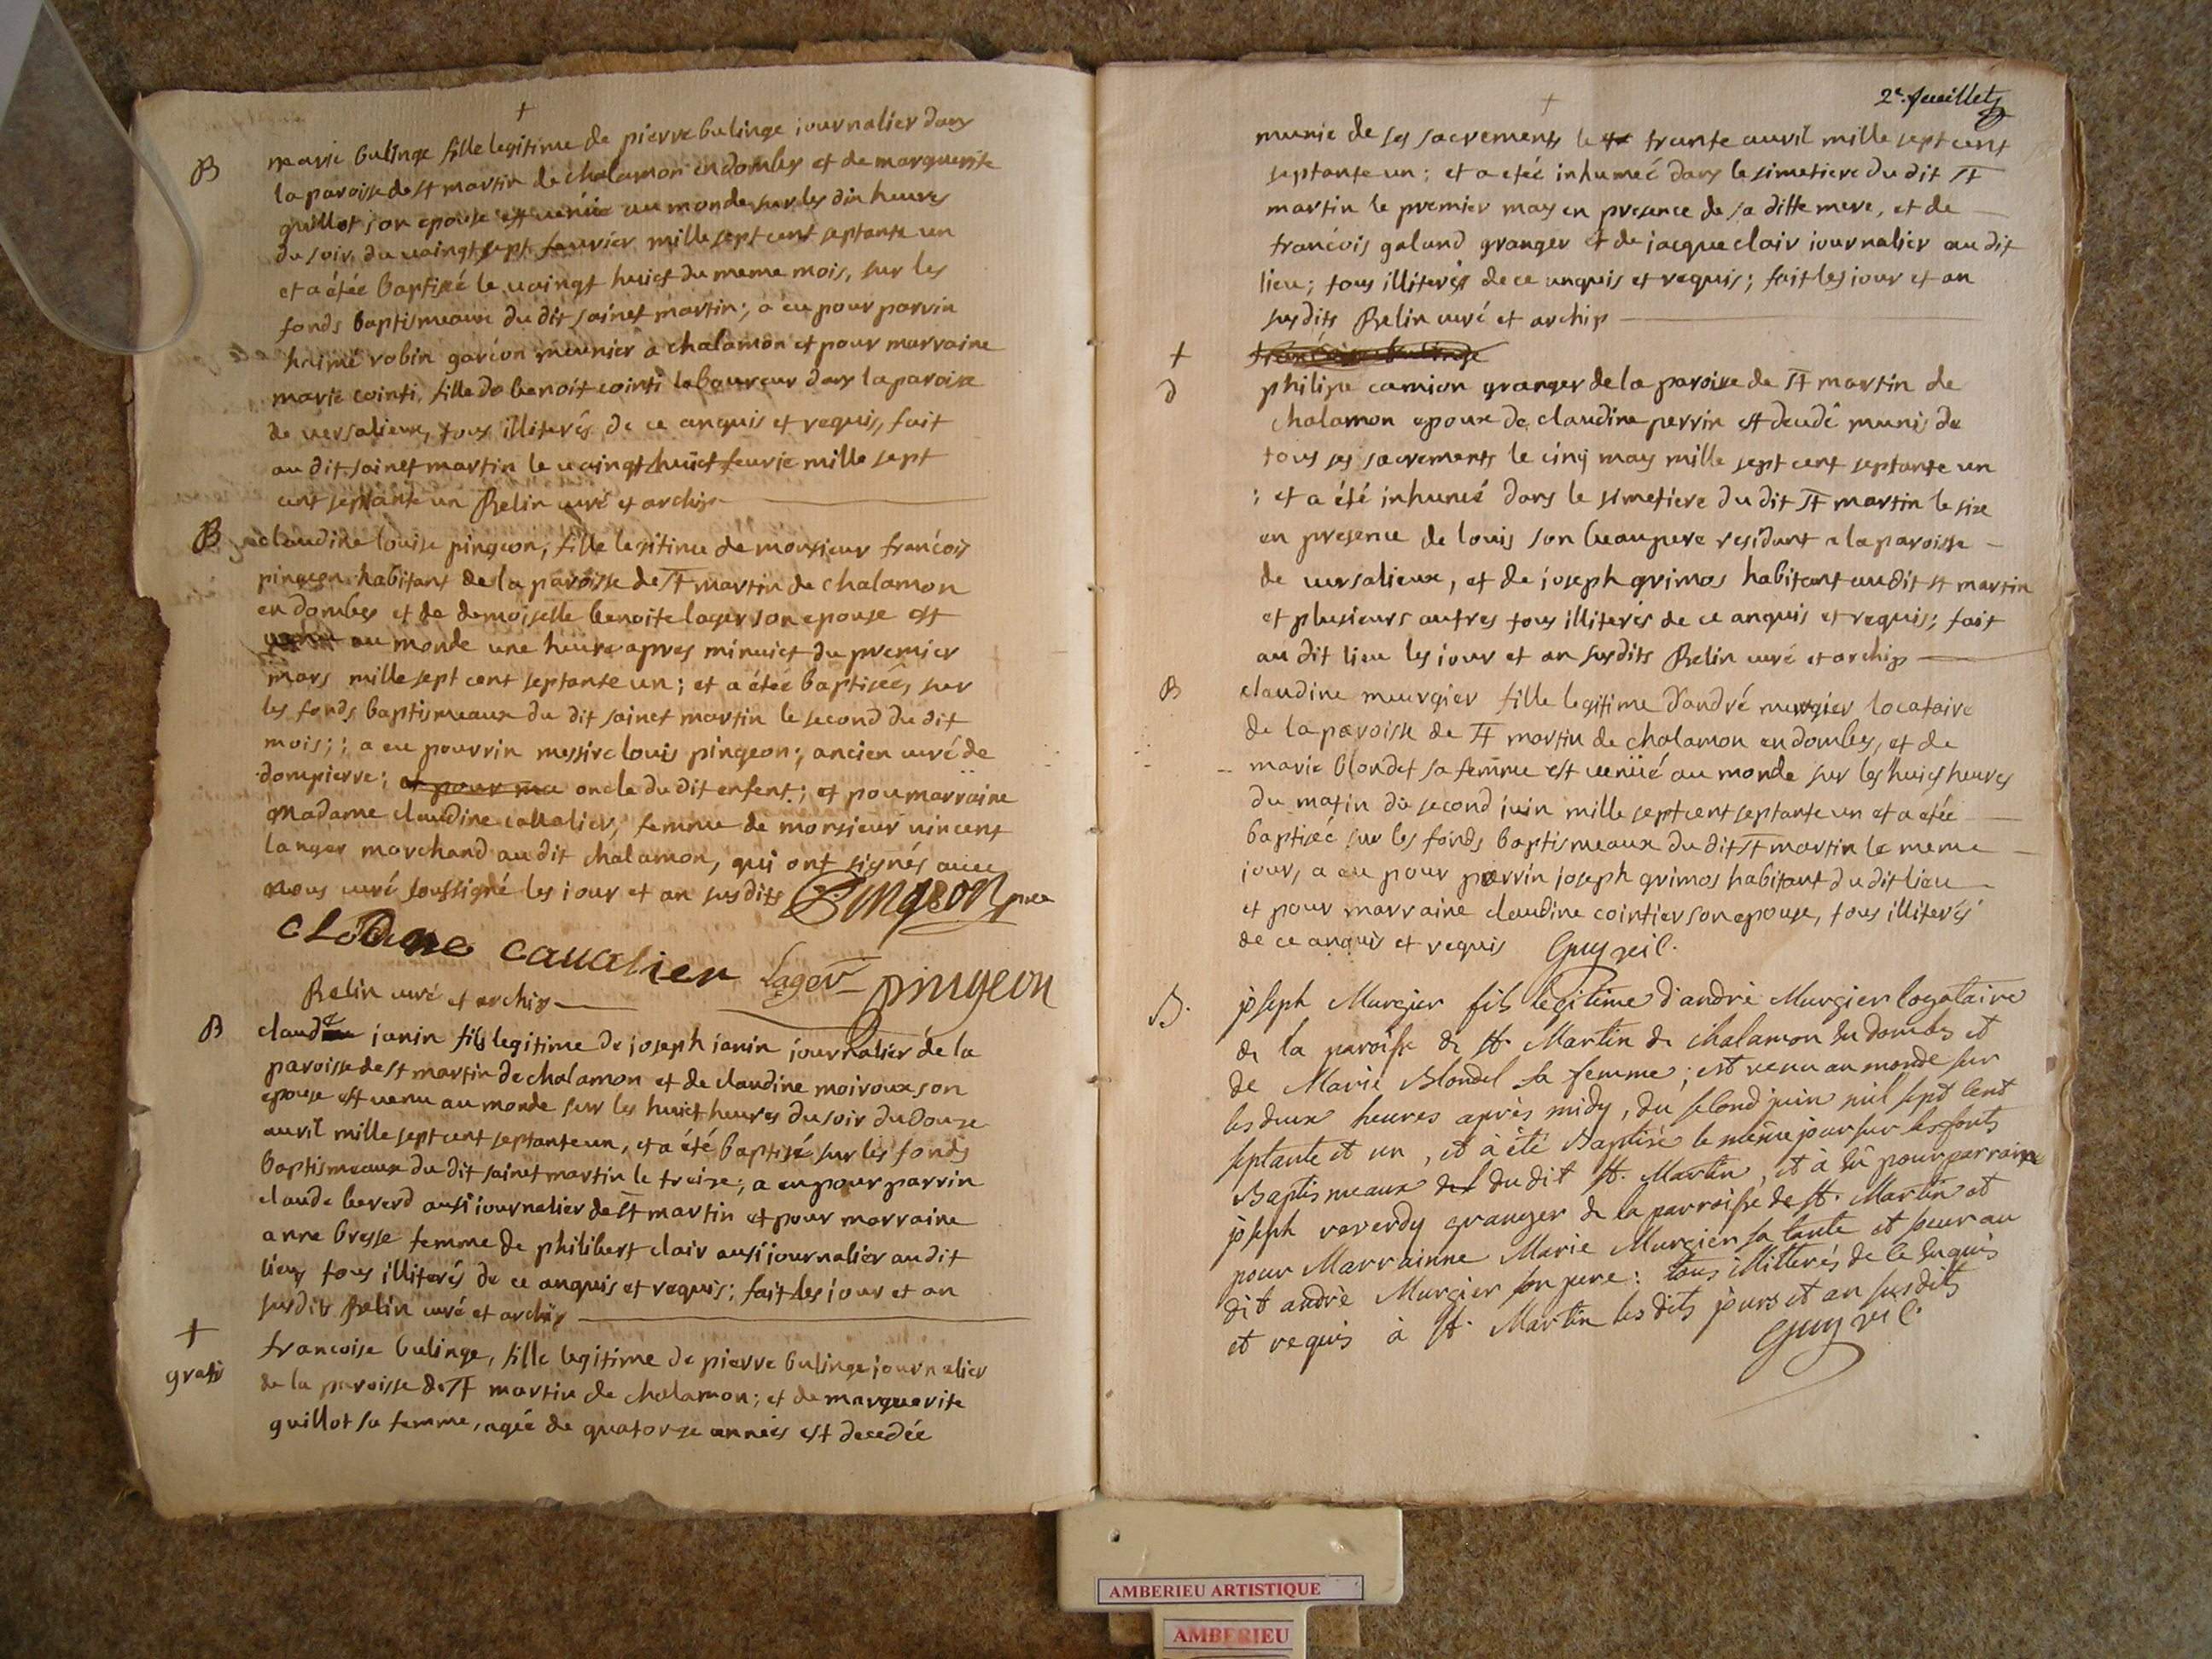 +
B marie bulinge fille legitime de pierre bulinge iournalier dans
la paroisse de st martin de chalamon en dombes et de marguerite
guillot son epouse est venüe au monde sur les dix heures
du soir du vaingt sept feurier mille sept cent septante un
et a étée baptisée le vaingt huict du meme mois, sur les
fonds baptismeaux du dit sainct martin; a eu pour parrin
haimé robin garéon meunier a chalamon et pour marraine
marie cointi, fille de benoit cointi laboureur dans la paroisse
de versalieux, tous illiterés de ce anquis et requis, fait
au dit sainct martin le vaingt huict feurie mille sept
cent septante un Relin curé et archip
B claudine louise pingeon, fille legitime de monsieur francóis
pingeon habitant de la paroisse de st martin de chalamon
en dombes et de demoiselle benoite lager son epouse est
au monde une heure apres minuict du premier
mars mille sept cent septante un; et a étée baptisée, sur
les fonds baptismeaux du dit sainct martin le second du dit
mois;; a eu pourrin messire louis pingeon; ancien curé de
dompierre; et pour ma oncle du dit enfent; et pou marraine
Madame claudine cavalier, femme de monsieur vincent
langer marchand au dit chalamon, qui ont signés avec
nous curé soussigné les iour et an susdits Pingeon
clodine cauualier lager pingeon
Relin curé et archip
B claude janin fils legitime de joseph janin journalier de la
paroisse de st martin de chalamon et de claudine moiroux son
epouse est venu au monde sur les huict heures du soir du douze
auril mille sept cent septante un, et a été baptisé sur les fonds
baptismeaux du dit sainct martin le treize; a eu pour parrin
claude beverd ausi iournalier de st martin et pour marraine
anne bresse femme de philibert clair ausi journalier au dit
lieu, tous illiterés de ce anquis et requis; fait les iour et an
susdits Relin curé et archip
+
gratis
francoise bulinge, fille legitime de pierre bulinge journalier
de la paroisse de st martin de chalamon; et de marguerite
guillot sa femme, agée de quatorze années est decedée
2e. feuillet
+
munie de ses sacrements le trante auvil mille sept cent
septante un; et a etée inhumée dans le simetiere du dit st
martin le premier may en presence de sa ditte mere, et de
francóis galand granger et de jacque clair iournalier au dit
lieu; tous illiterés de ce anquis et requis; fait les iour et an
susdits Relin curé et archip
+ francóise bulinge
d philipe camion granger de la paroisse de st martin de
chalamon epoux de claudine perrin est decedé munis de
tous ses sacrements le cinq may mille sept cent septante un
; et a été inhumé dans le simetiere du dit st martin le six
en presence de louis son beaupere residant a la paroisse
de versalieux, et de joseph grimos habitant au dit st martin
et plusieurs autres tous illiterés de ce anquis et requis; fait
au dit lieu les iour et an susdits Relin curé et archip
B claudine meurgier fille legitime d'andré murgier locataire
de la paroisse de st martin de chalamon en dombes, et de
marie blondet sa femme est venüe au monde sur les huict heures
du matin du second juin mille sept cent septante un et a étée
baptiseé sur les fonds baptismeaux du dit st martin le meme
jour, a eu pour parrin joseph grimos habitant du dit lieu
et pour marraine claudine cointier son epouse, tous illiterés
de ce anquis et requis Guy
B. joseph Murgier fils legitime d'andré Murgier locataire
de la paroisse de St. Martin de chalamon en dombes et
de Marie Blondel sa femme; est venu au monde sur
les deux heures après midy, du second juin mil sept cent
septante et un, et à été Baptisé le même jour sur les fonts
Baptismeaux du dit St. Martin, et à eu pour parrain
joseph reverdy granger de la parroisse de St. Martin et
pour Marrainne Marie Murgier sa tante et soeur au
dit andré Murgier son pere: tous illitterés de ce enquis
et requis à St. Martin les dits jours et an susdits
Guy
AMBERIEU ARTISTIQUE
AMBERIEU